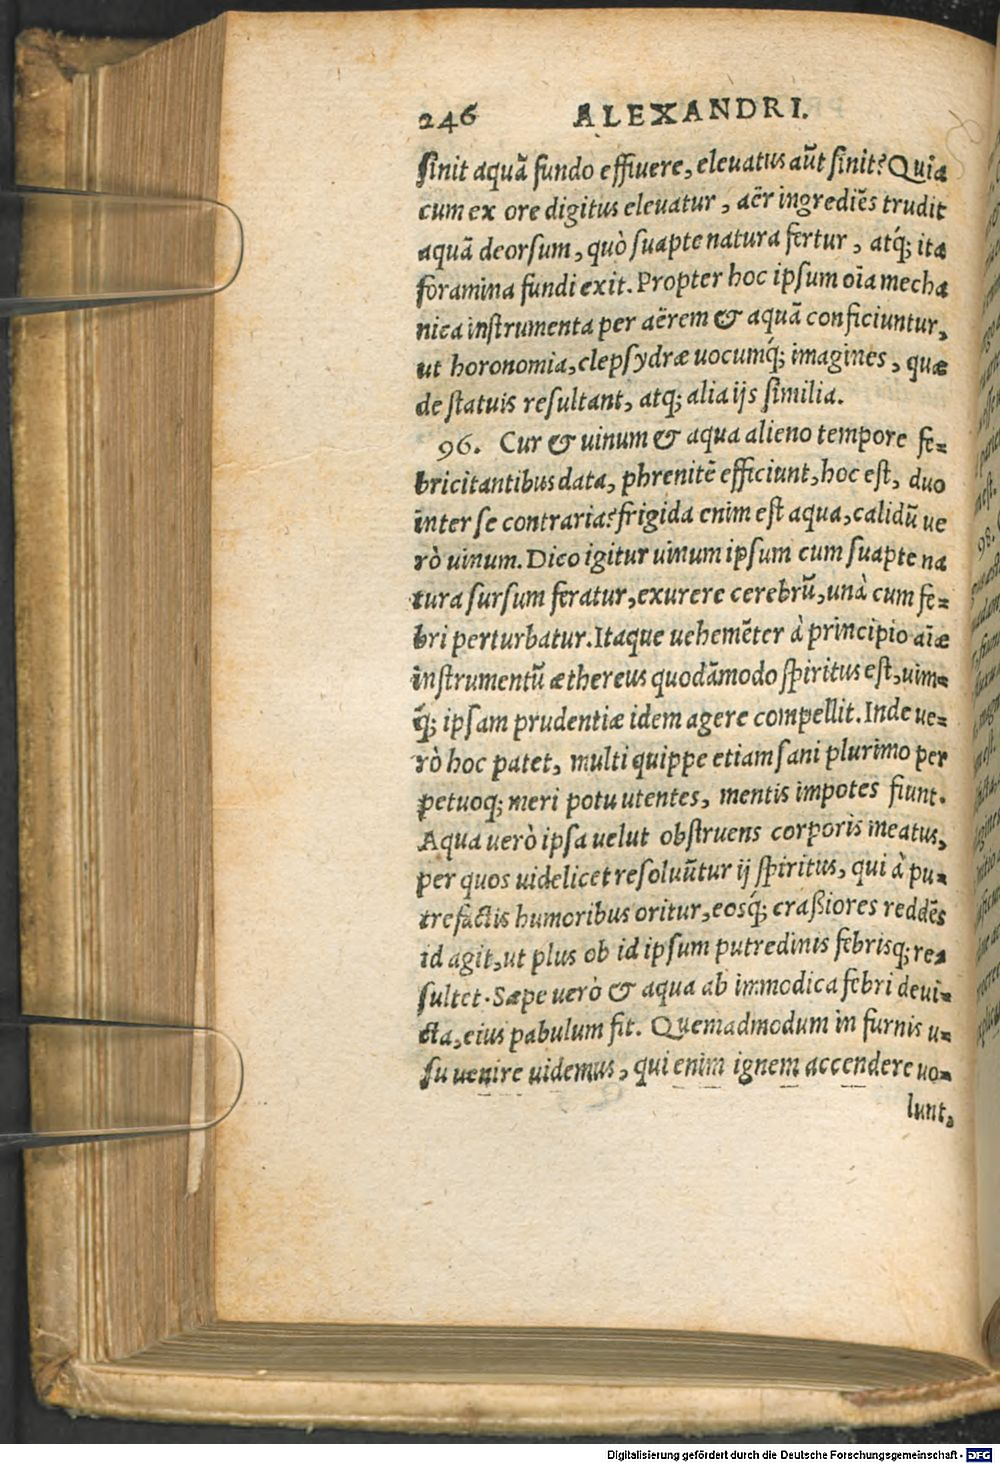 246 ALEXANDRI.
sinit aquã fundo effluere, eleuatus aũt sinit? Quia
cum ex ore digitus eleuatur, aër ingrediẽs trudit
aquã deorsum, quò suapte natura fertur, atq́; ita
foramina fundi exit. Propter hoc ipsum oĩa mecha
nica instrumenta per aërem & aquã conficiuntur,
ut horonomia, clepsydræ uocumq́; imagines, quæ
de statuis resultant, atq; alia ijs similia.
96. Cur & uinum & aqua alieno tempore fe-
bricitantibus data, phrenitẽ efficiunt, hoc est, duo
inter se contraria? frigida enim est aqua, calidũ ue
rò uinum. Dico igitur uinum ipsum cum suapte na
tura sursum feratur, exurere cerebrũ, unà cum fe-
bri perturbatur. Itaque uehemẽter à principio aĩæ
instrumentũ æthereus quodãmodo spiritus est, uim-
q́; ipsam prudentiæ idem agere compellit. Inde ue-
rò hoc patet, multi quippe etiam sani plurimo per
petuoq; meri potu utentes, mentis impotes fiunt.
Aqua uerò ipsa uelut obstruens corporis meatus,
per quos uidelicet resoluũtur ij spiritus, qui à pu-
trefactis humoribus oritur, eosq́; craßiores reddẽs
id agit, ut plus ob id ipsum putredinis febrisq; re-
sultet. Sæpe uerò & aqua ab immodica febri deui-
cta, eius pabulum fit. Quemadmodum in furnis u-
su uenire uidemus, qui enim ignem accendere uo-
lunt,
Digitalisierung gefördert durch die Deutsche Forschungsgemeinschaft - DFG